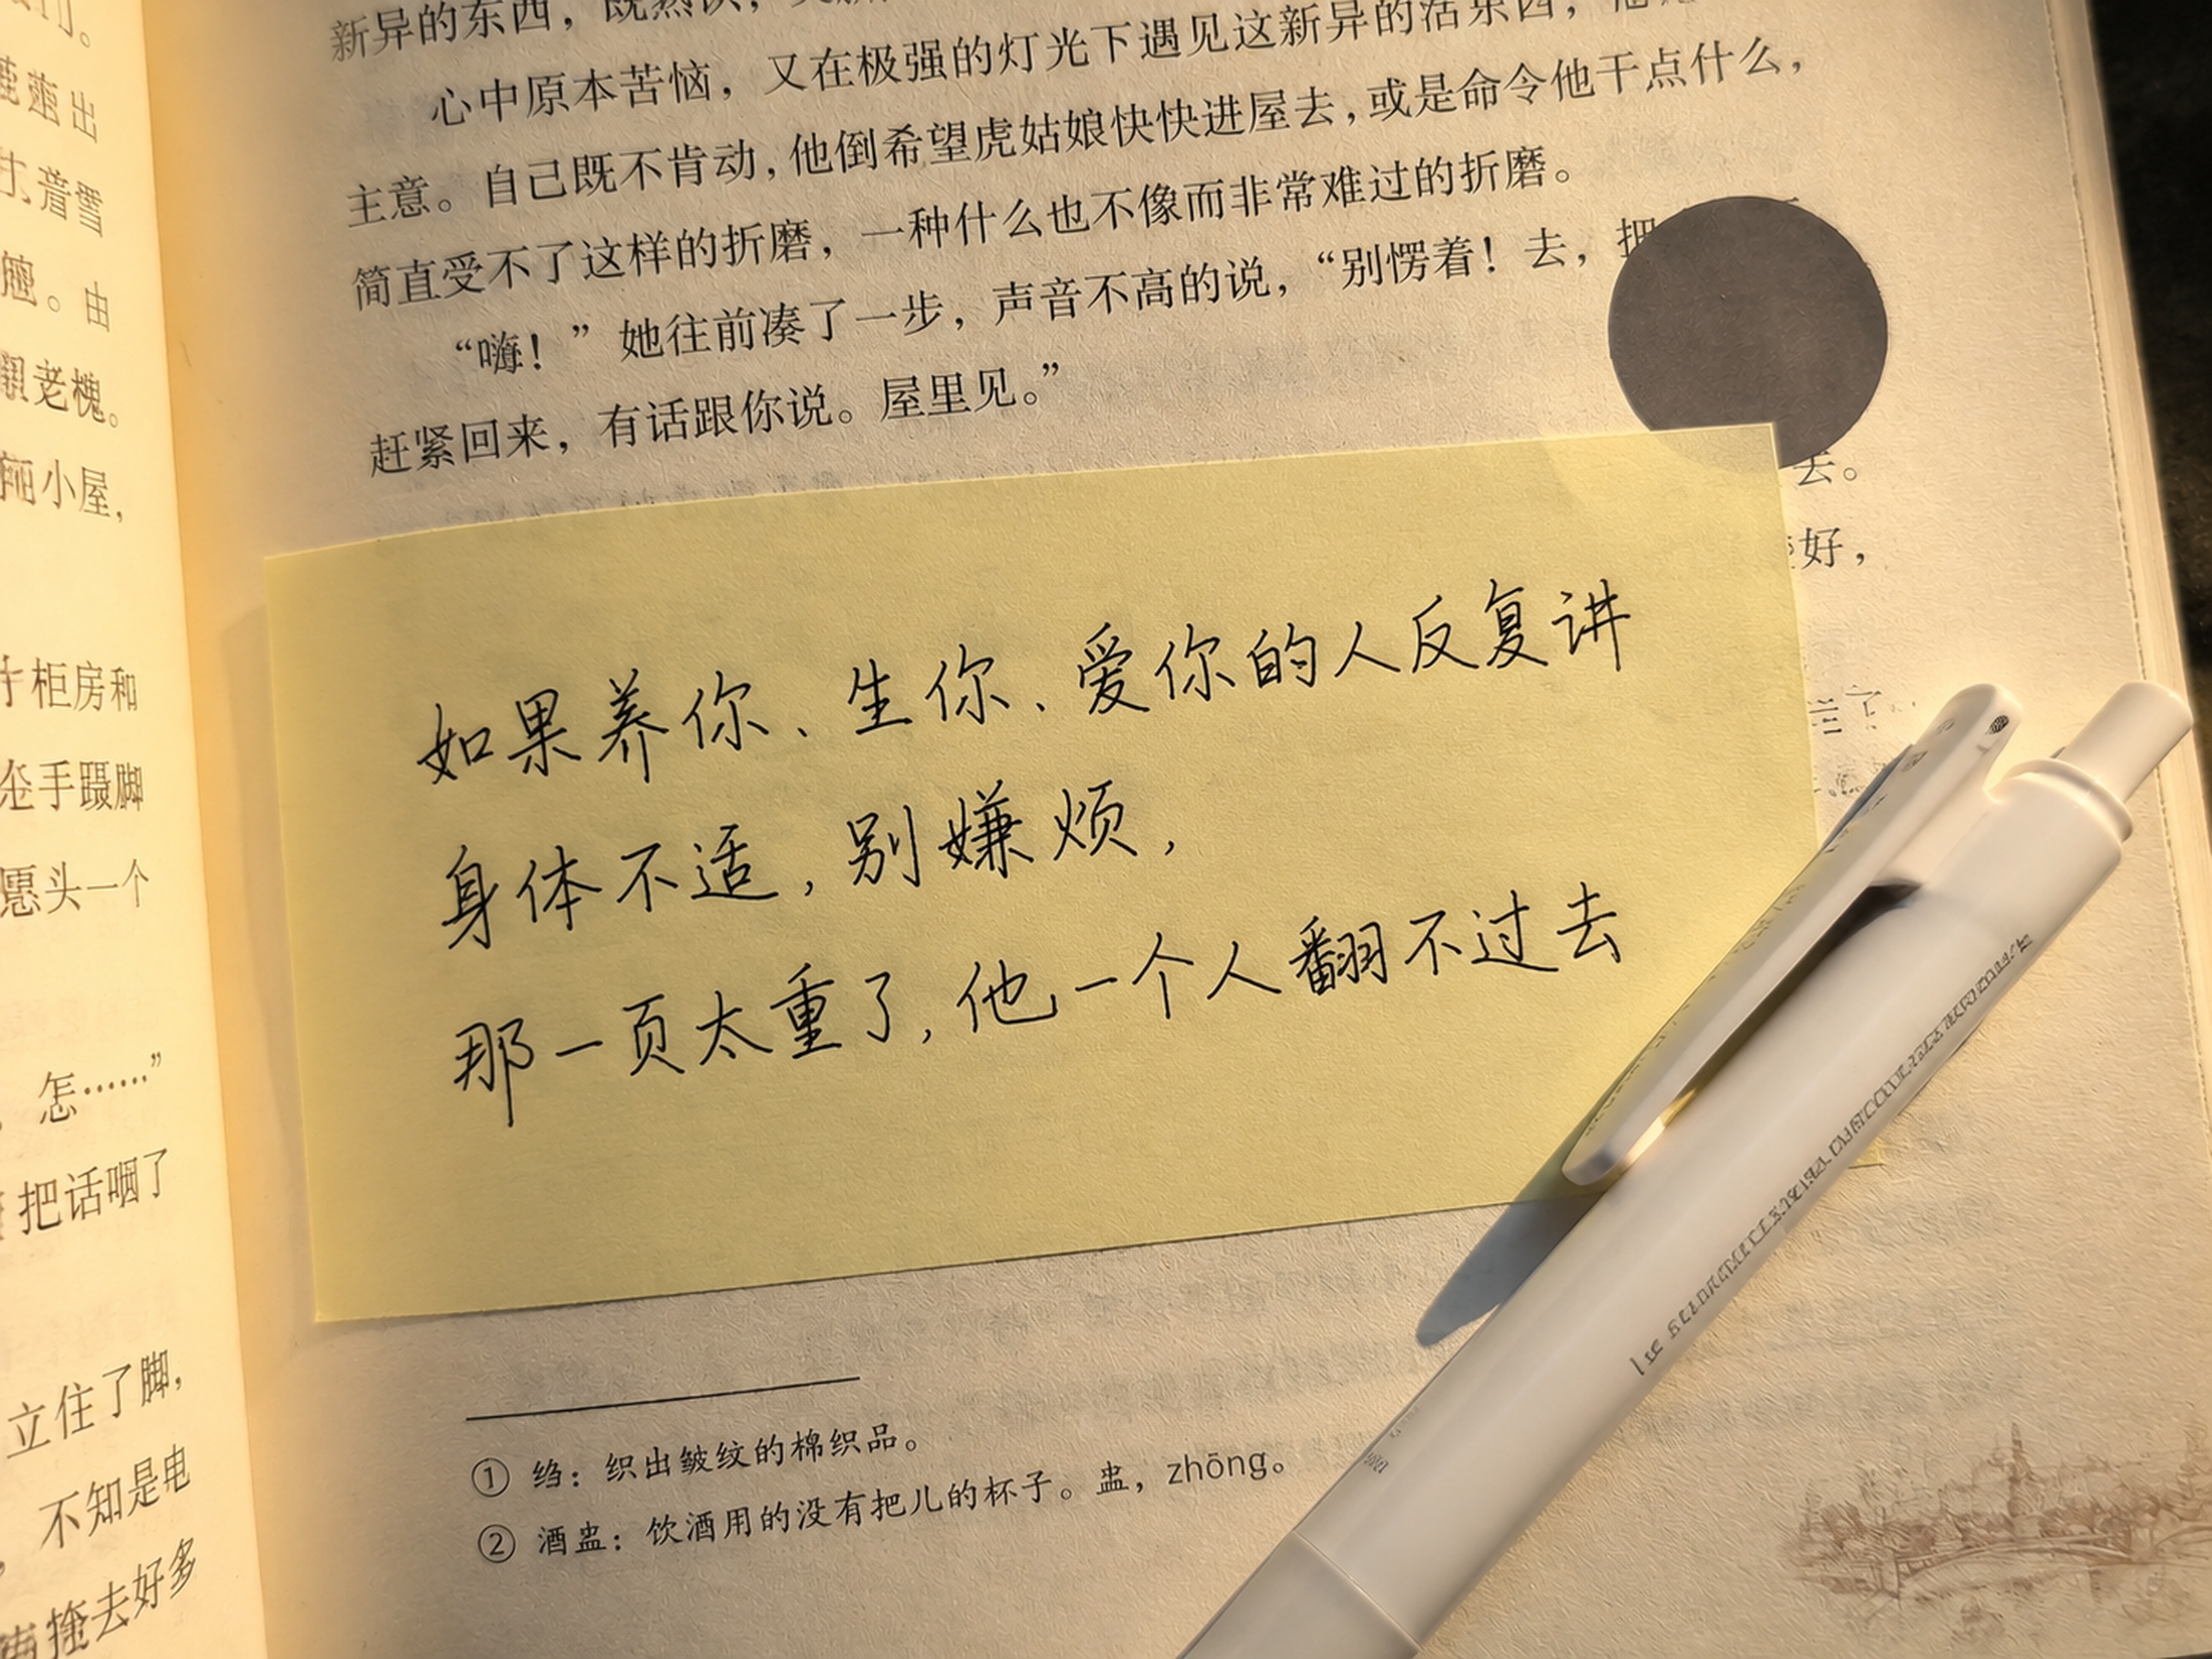 新异的东西，既熟识，
心中原本苦恼，又在极强的灯光下遇见这新异的活东西，
主意。自己既不肯动，他倒希望虎姑娘快快进屋去，或是命令他干点什么，
简直受不了这样的折磨，一种什么也不像而非常难过的折磨。
“嗨！”她往前凑了一步，声音不高的说，“别愣着！去，把
赶紧回来，有话跟你说。屋里见。”
去。
好，
如果养你、生你、爱你的人反复讲
身体不适，别嫌烦，
那一页太重了，他一个人翻不过去
① 绉：织出皱纹的棉织品。
② 酒盅：饮酒用的没有把儿的杯子。盅，zhōng。
出
着雪
。由
老槐。
小屋，
柜房和
手蹑脚
头一个
怎……”
把话咽了
立住了脚，
不知是电
掩去好多